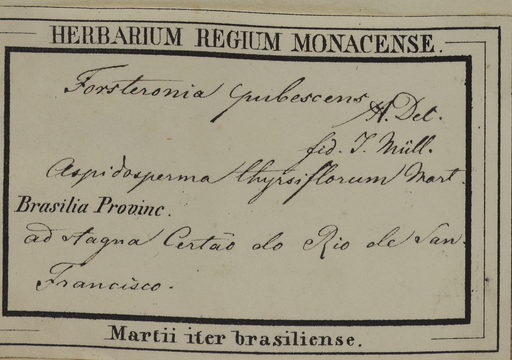 HERBARIUM REGIUM MONACENSE.
Forsteronia pubescens A. Det.
fid. J. Müll.
Aspidosperma thyrsiflorum Mart.
Brasilia Provinc.
ad stagna Certão do Rio de San
Francisco.
Martii iter brasiliense.